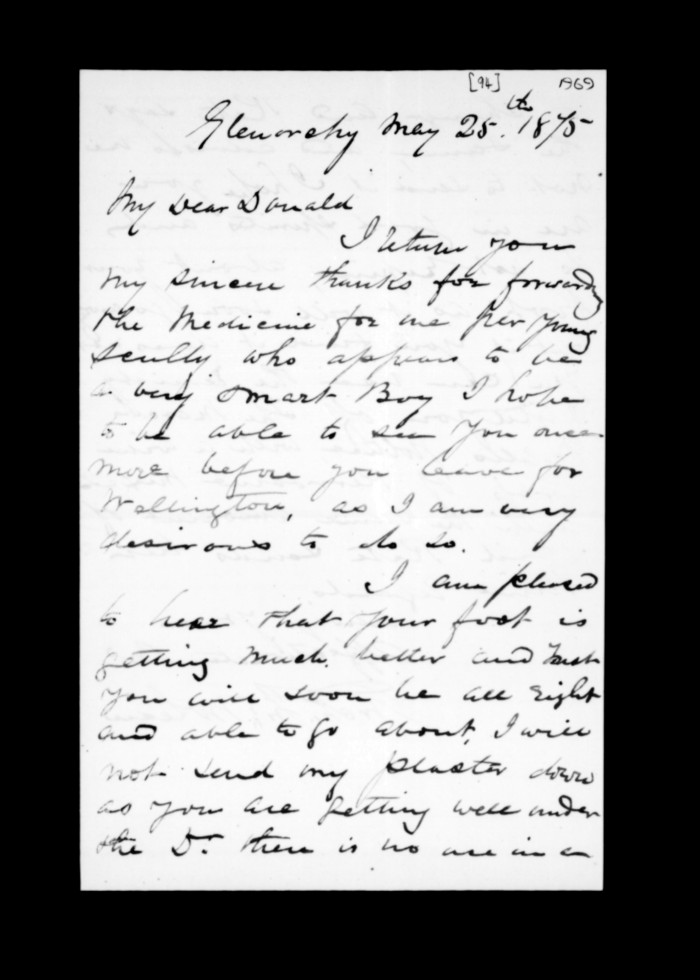 [94] 1969
Glenorchy May 25.th 1875
My Dear Donald
I return you
my sincere thanks for forwarding
the Medicine for me per young
Scully who appears to be
a very smart Boy I hope
to be able to see you once
more before you leave for
Wellington, as I am very
desirous to do so.
I am pleased
to hear that your foot is
getting much better and trust
you will soon be all right
and able to go about, I will
not send my plaster down
as you are getting well under
the Dr. there is no use in a